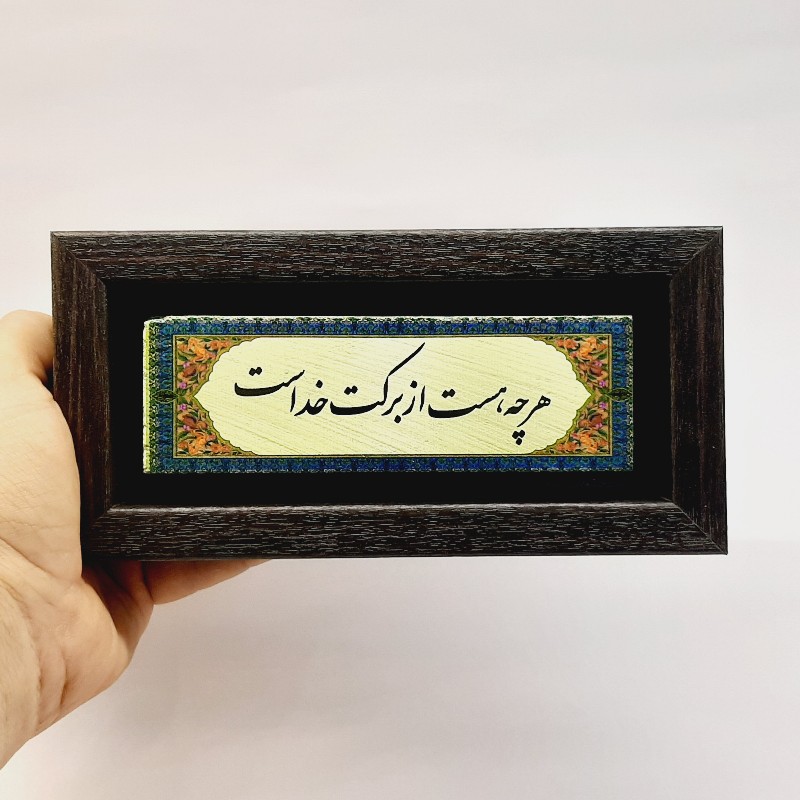 هر چه هست از برکت خداست